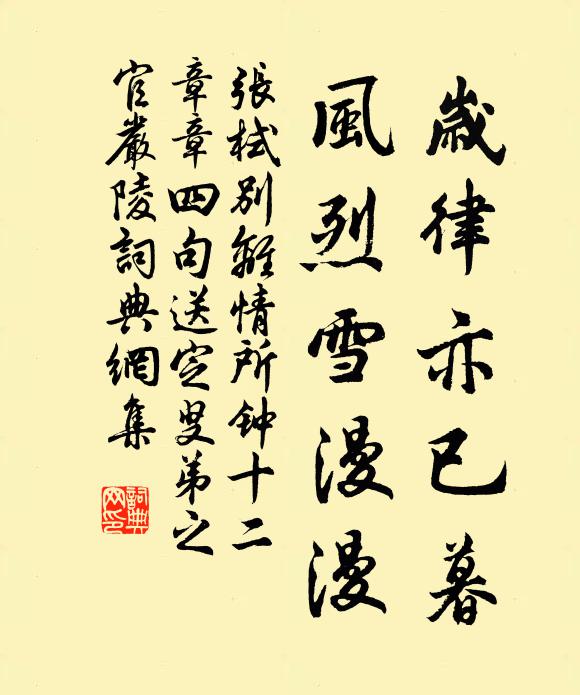 歲律亦已暮
風烈雪漫漫
張栻別離情所钟十二
章章四句送定叟弟之
官嚴陵詞典網集
詞典
网印